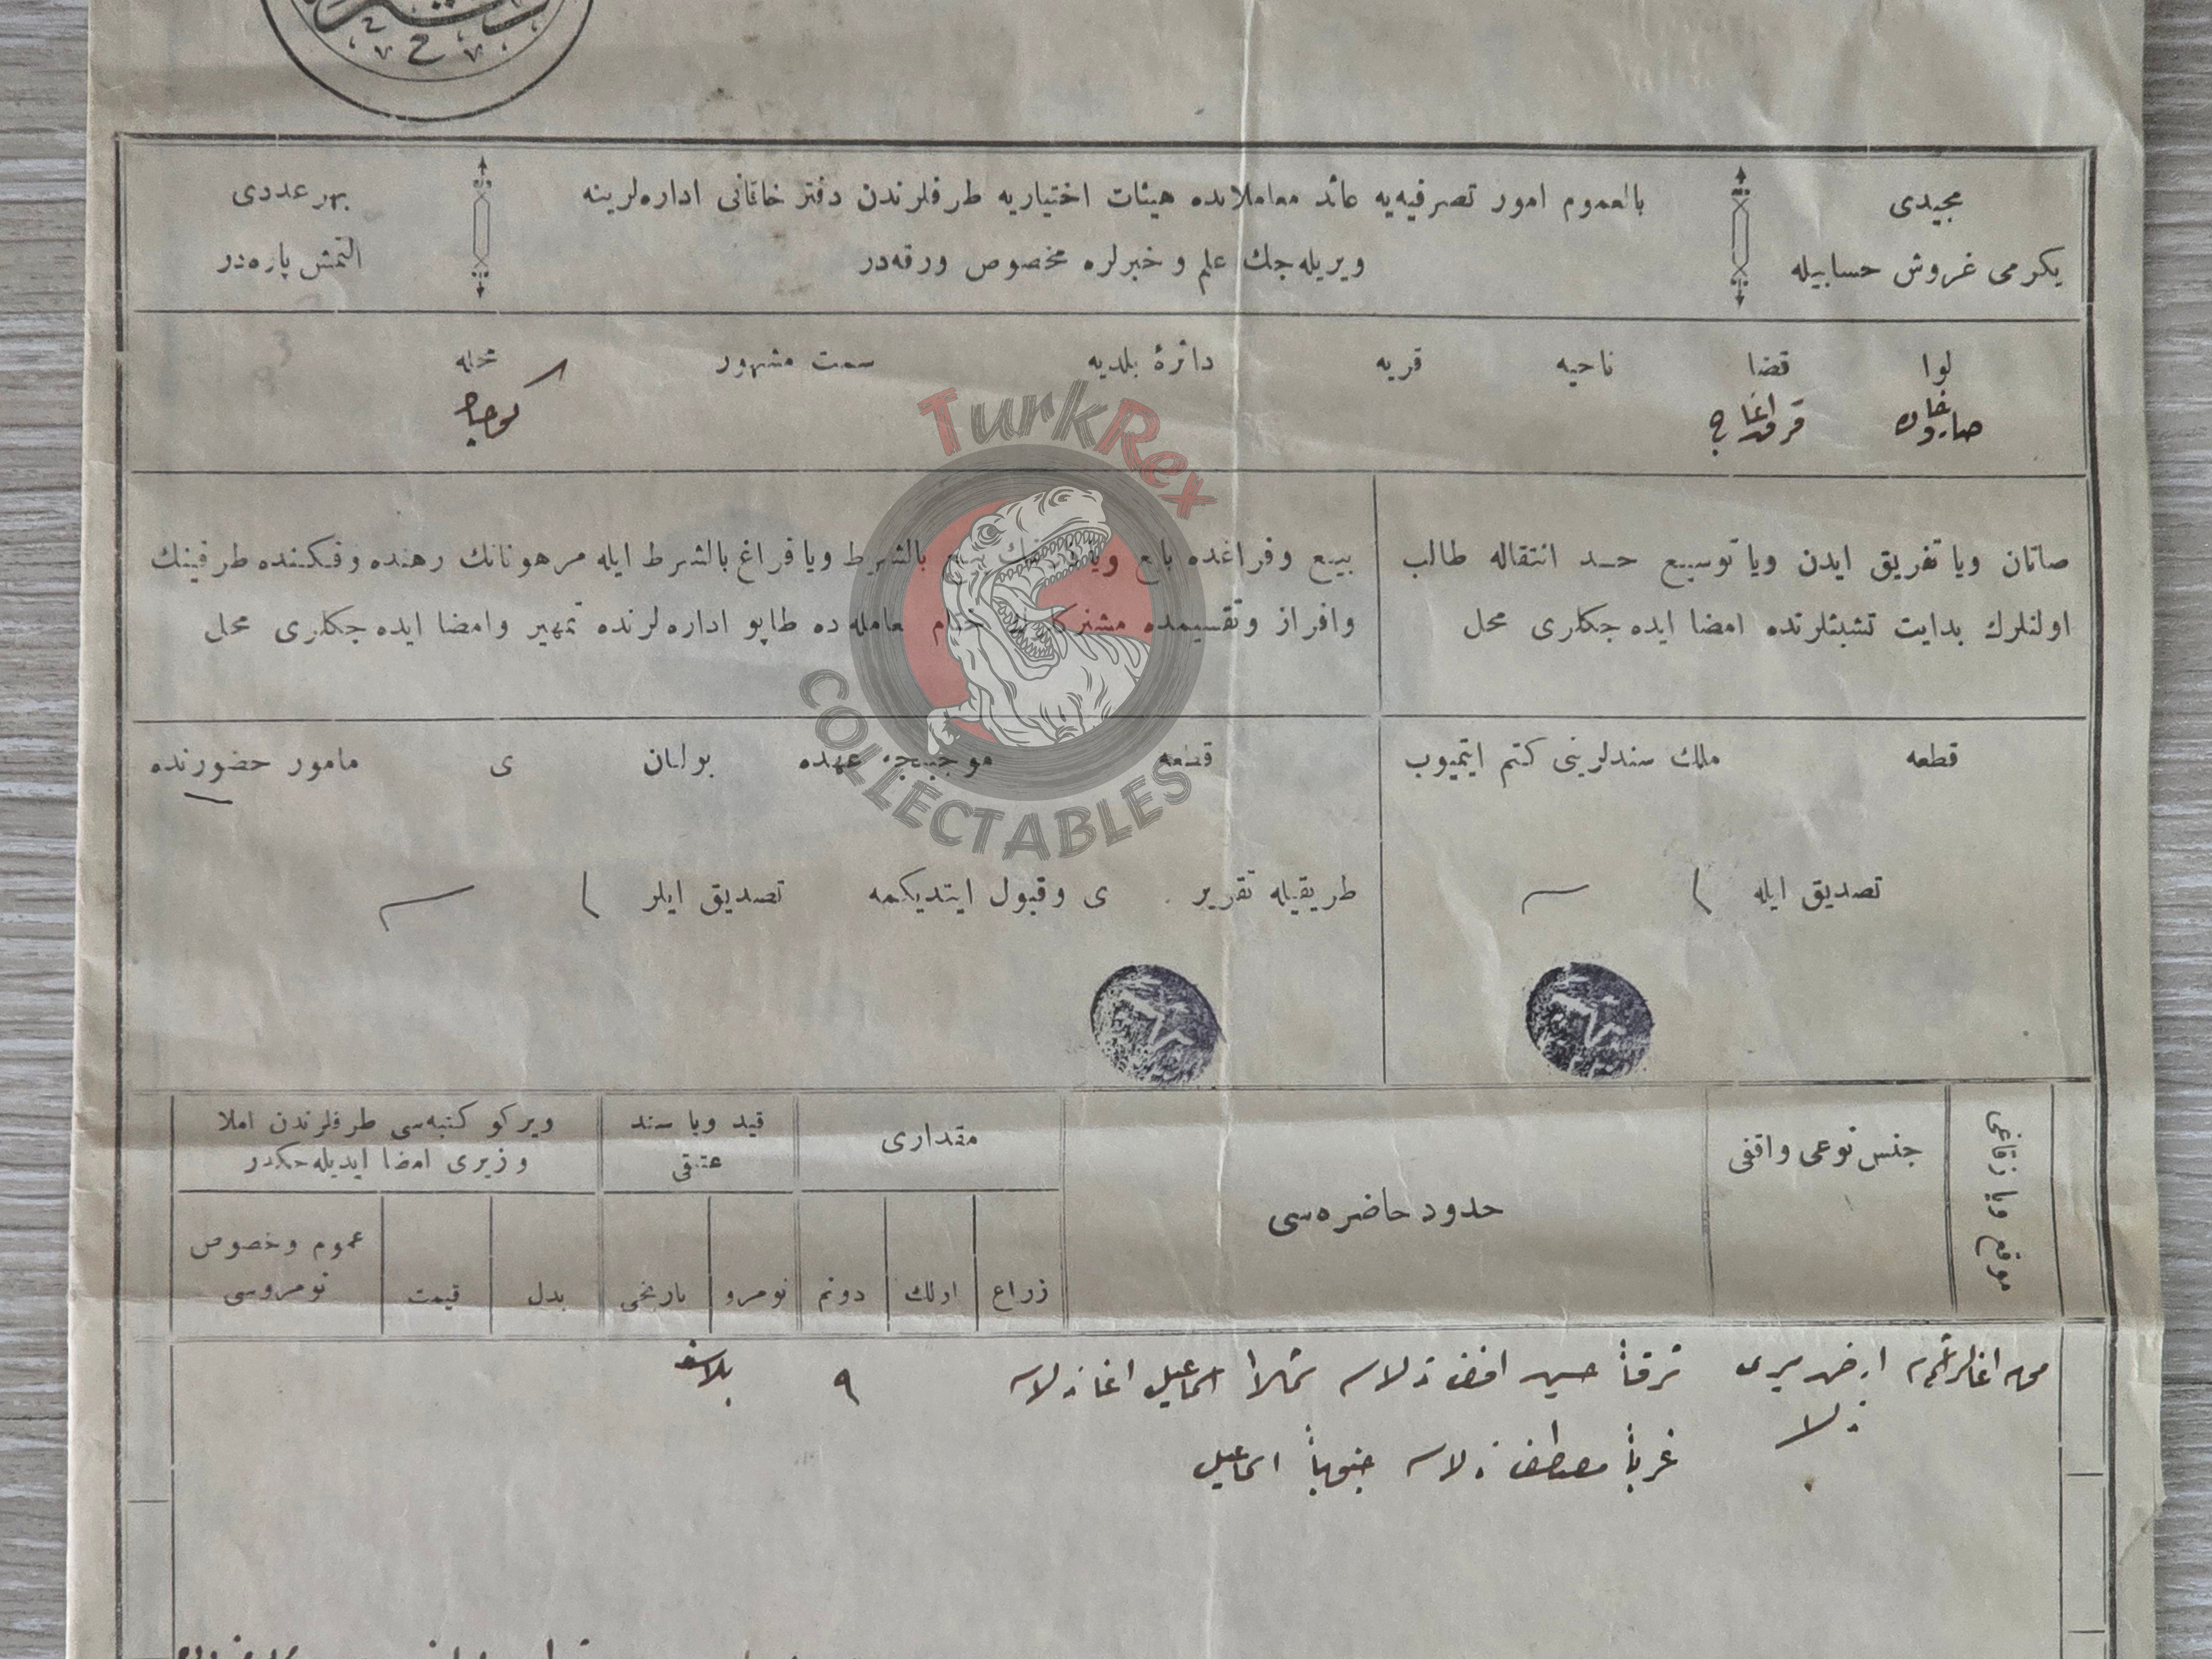 مجیدی
یكرمی غروش حسابیله
بالعموم امور تصرفیه‌یه عائد معاملاتده هیئات اختیاریه طرفلرندن دفتر خاقانی اداره‌لرینه
ویریله‌جك علم و خبرلره مخصوص ورقه‌در
بهر عددی
التمش پاره‌در
لوا قضا ناحیه قریه دائرهٔ بلدیه سمت مشهور محله
صاروخان
قرق اغاج
TurkRex
COLLECTABLES
صاتان ویا تفریق ایدن ویا توسیع حد انتقاله طالب
اولنلرك بدایت تشبثلرنده امضا ایده جكلری محل
بیع وفراغده بایع بالشرط ویا فراغ بالشرط ایله مرهوناتك رهنده وفكنده طرفینك
وافراز وتقسیمده ختام معامله‌ده طاپو اداره‌لرنده تمهیر وامضا ایده جكلری محل
قطعه ملك سندلرینی كتم ایتمیوب
تصدیق ایله
قطعه موجبنجه عهده بولنان ی مأمور حضورنده
طریقیله تقریر ی وقبول ایتدیكمه تصدیق ایلر
موقع ویا زقاغی
جنس نوعی واقفی
حدود حاضره‌سی
مقداری
ذراع اولك دونم
قید ویا سند
عتیقی
نومرو تاریخی
ویركو كتبه‌سی طرفلرندن املا
وزیری امضا ایدیله‌جكدر
بدل قیمت
عموم وخصوص
نومروسی
ارض میری
شرقاً حسین افندی تارلاسی شمالاً اسماعیل اغا تارلاسی
٩
بلاسند
تارلا
غرباً مصطفی تارلاسی جنوباً اسماعیل